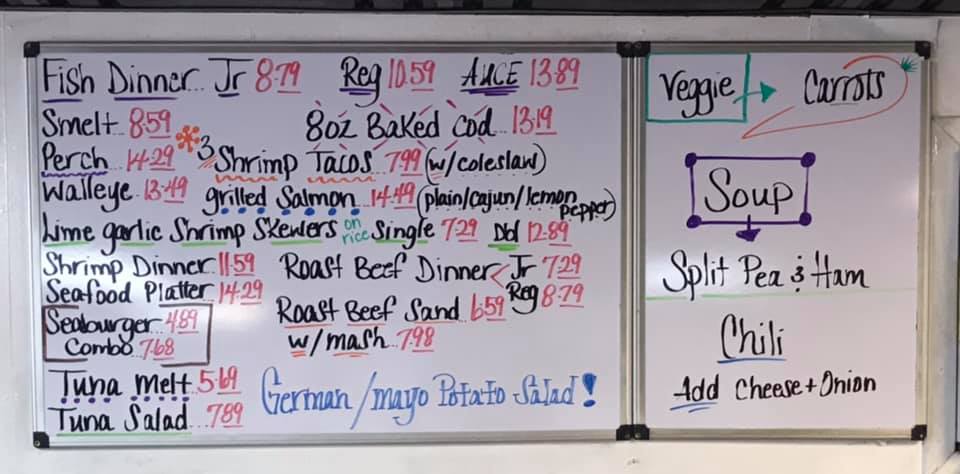 Fish Dinner... Jr 8.79 Reg 10.59 AUCE 13.89
Smelt 8.59 8oz Baked Cod... 13.19
Perch... 14.29 *3 Shrimp Tacos 7.99 (w/coleslaw)
Walleye... 13.49 grilled Salmon... 14.49 (plain/cajun/lemon pepper)
Lime garlic Shrimp Skewers on rice Single 7.29 Dbl 12.89
Shrimp Dinner 11.59 Roast Beef Dinner < Jr 7.29
Reg 8.79
Seafood Platter 14.29 Roast Beef Sand 6.59
Seaburger... 4.89 w/mash... 7.98
Combo... 7.68
Tuna Melt 5.69 German/mayo Potato Salad!
Tuna Salad... 7.89
Veggie → Carrots
Soup
Split Pea & Ham
Chili
Add Cheese + Onion